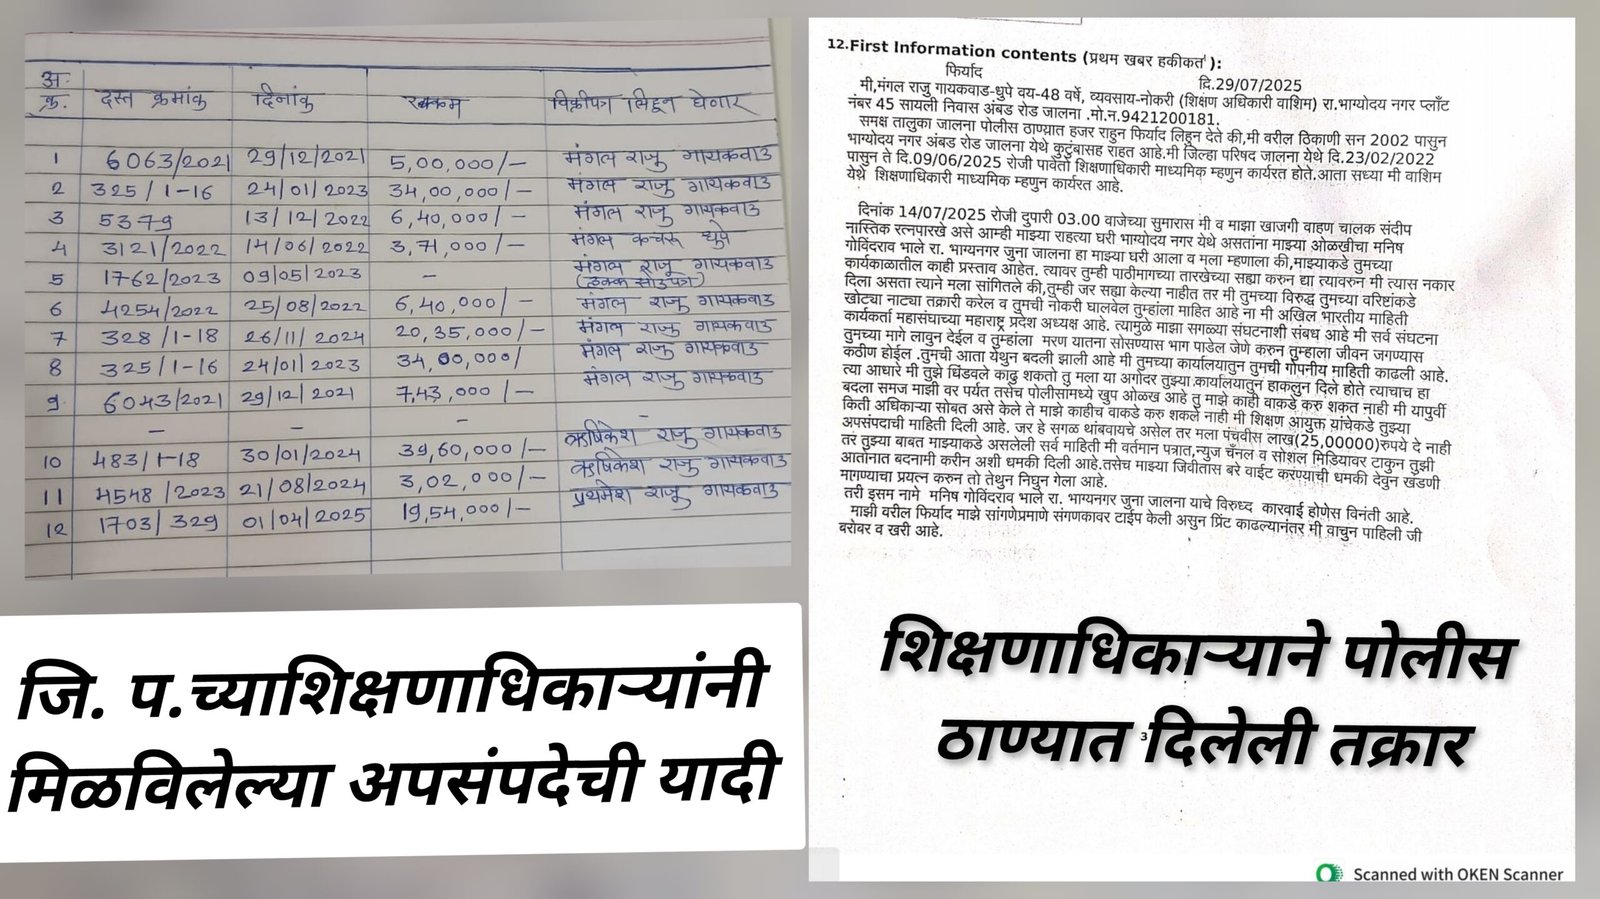 अ.
क्र.
दस्त क्रमांक
दिनांक
रक्कम
विक्रीपत्र लिहून घेणार
1 6063/2021 29/12/2021 5,00,000/- मंगल राजु गायकवाड
2 325/1-16 24/01/2023 34,00,000/- मंगल राजु गायकवाड
3 5379 13/12/2022 6,40,000/- मंगल राजु गायकवाड
4 3121/2022 14/06/2022 3,71,000/- मंगल कचरू धुपे
5 1762/2023 09/05/2023 - मंगल राजू गायकवाड
(हक्क सोडपत्र)
6 4254/2022 25/08/2022 6,40,000/- मंगल राजु गायकवाड
7 328/1-18 26/11/2024 20,35,000/- मंगल राजु गायकवाड
8 325/1-16 24/01/2023 34,00,000/ मंगल राजु गायकवाड
9 6043/2021 29/12/2021 7,43,000/- मंगल राजु गायकवाड
- - - -
10 483/1-18 30/01/2024 39,60,000/- ऋषिकेश राजु गायकवाड
11 4548/2023 21/08/2024 3,02,000/- ऋषिकेश राजु गायकवाड
12 1703/329 01/04/2025 19,54,000/- प्रथमेश राजू गायकवाड
जि. प.च्याशिक्षणाधिकाऱ्यांनी
मिळविलेल्या अपसंपदेची यादी
12.First Information contents (प्रथम खबर हकीकत ):
फिर्याद
दि.29/07/2025
मी,मंगल राजु गायकवाड-धुपे वय-48 वर्षे, व्यवसाय-नोकरी (शिक्षण अधिकारी वाशिम) रा.भाग्योदय नगर प्लॉट
नंबर 45 सायली निवास अंबड रोड जालना .मो.न.9421200181.
समक्ष तालुका जालना पोलीस ठाण्यात हजर राहुन फिर्याद लिहुन देते की,मी वरील ठिकाणी सन 2002 पासुन
भाग्योदय नगर अंबड रोड जालना येथे कुटुंबासह राहत आहे.मी जिल्हा परिषद जालना येथे दि.23/02/2022
पासुन ते दि.09/06/2025 रोजी पावेतो शिक्षणाधिकारी माध्यमिक म्हणुन कार्यरत होते.आता सध्या मी वाशिम
येथे शिक्षणाधिकारी माध्यमिक म्हणुन कार्यरत आहे.
दिनांक 14/07/2025 रोजी दुपारी 03.00 वाजेच्या सुमारास मी व माझा खाजगी वाहण चालक संदीप
नास्तिक रत्नपारखे असे आम्ही माझ्या राहत्या घरी भाग्योदय नगर येथे असतांना माझ्या ओळखीचा मनिष
गोविंदराव भाले रा. भाग्यनगर जुना जालना हा माझ्या घरी आला व मला म्हणाला की,माझ्याकडे तुमच्या
कार्यकाळातील काही प्रस्ताव आहेत. त्यावर तुम्ही पाठीमागच्या तारखेच्या सह्या करुन द्या त्यावरुन मी त्यास नकार
दिला असता त्याने मला सांगितले की,तुम्ही जर सह्या केल्या नाहीत तर मी तुमच्या विरुद्ध तुमच्या वरिष्ठांकडे
खोट्या नाट्या तक्रारी करेल व तुमची नोकरी घालवेल तुम्हाला माहित आहे ना मी अखिल भारतीय माहिती
कार्यकर्ता महासंघाच्या महाराष्ट्र प्रदेश अध्यक्ष आहे. त्यामुळे माझा सगळ्या संघटनाशी संबध आहे मी सर्व संघटना
तुमच्या मागे लावुन देईल व तुम्हांला मरण यातना सोसण्यास भाग पाडेल जेणे करुन तुम्हाला जीवन जगण्यास
कठीण होईल .तुमची आता येथुन बदली झाली आहे मी तुमच्या कार्यालयातुन तुमची गोपनीय माहिती काढली आहे.
त्या आधारे मी तुझे धिंडवले काढु शकतो तु मला या अगोदर तुझ्या.कार्यालयातुन हाकलुन दिले होते त्याचाच हा
बदला समज माझी वर पर्यत तसेच पोलीसामध्ये खुप ओळख आहे तु माझे काही वाकडे करु शकत नाही मी यापुर्वी
किती अधिकाऱ्या सोबत असे केले ते माझे काहीच वाकडे करु शकले नाही मी शिक्षण आयुक्त यांचेकडे तुझ्या
अपसंपदाची माहिती दिली आहे. जर हे सगळ थांबवायचे असेल तर मला पंचवीस लाख(25,00000)रुपये दे नाही
तर तुझ्या बाबत माझ्याकडे असलेली सर्व माहिती मी वर्तमान पत्रात,न्युज चॅनल व सोशल मिडियावर टाकुन तुझी
आतोनात बदनामी करीन अशी धमकी दिली आहे.तसेच माझ्या जिवीतास बरे वाईट करण्याची धमकी देवुन खंडणी
मागण्याचा प्रयत्न करुन तो तेथुन निघुन गेला आहे.
तरी इसम नामे मनिष गोविंदराव भाले रा. भाग्यनगर जुना जालना याचे विरुध्द कारवाई होणेस विनंती आहे.
माझी वरील फिर्याद माझे सांगणेप्रमाणे संगणकावर टाईप केली असुन प्रिंट काढल्यानंतर मी वाचुन पाहिली जी
बरोबर व खरी आहे.
शिक्षणाधिकाऱ्याने पोलीस
ठाण्यात दिलेली तक्रार
3
Scanned with OKEN Scanner